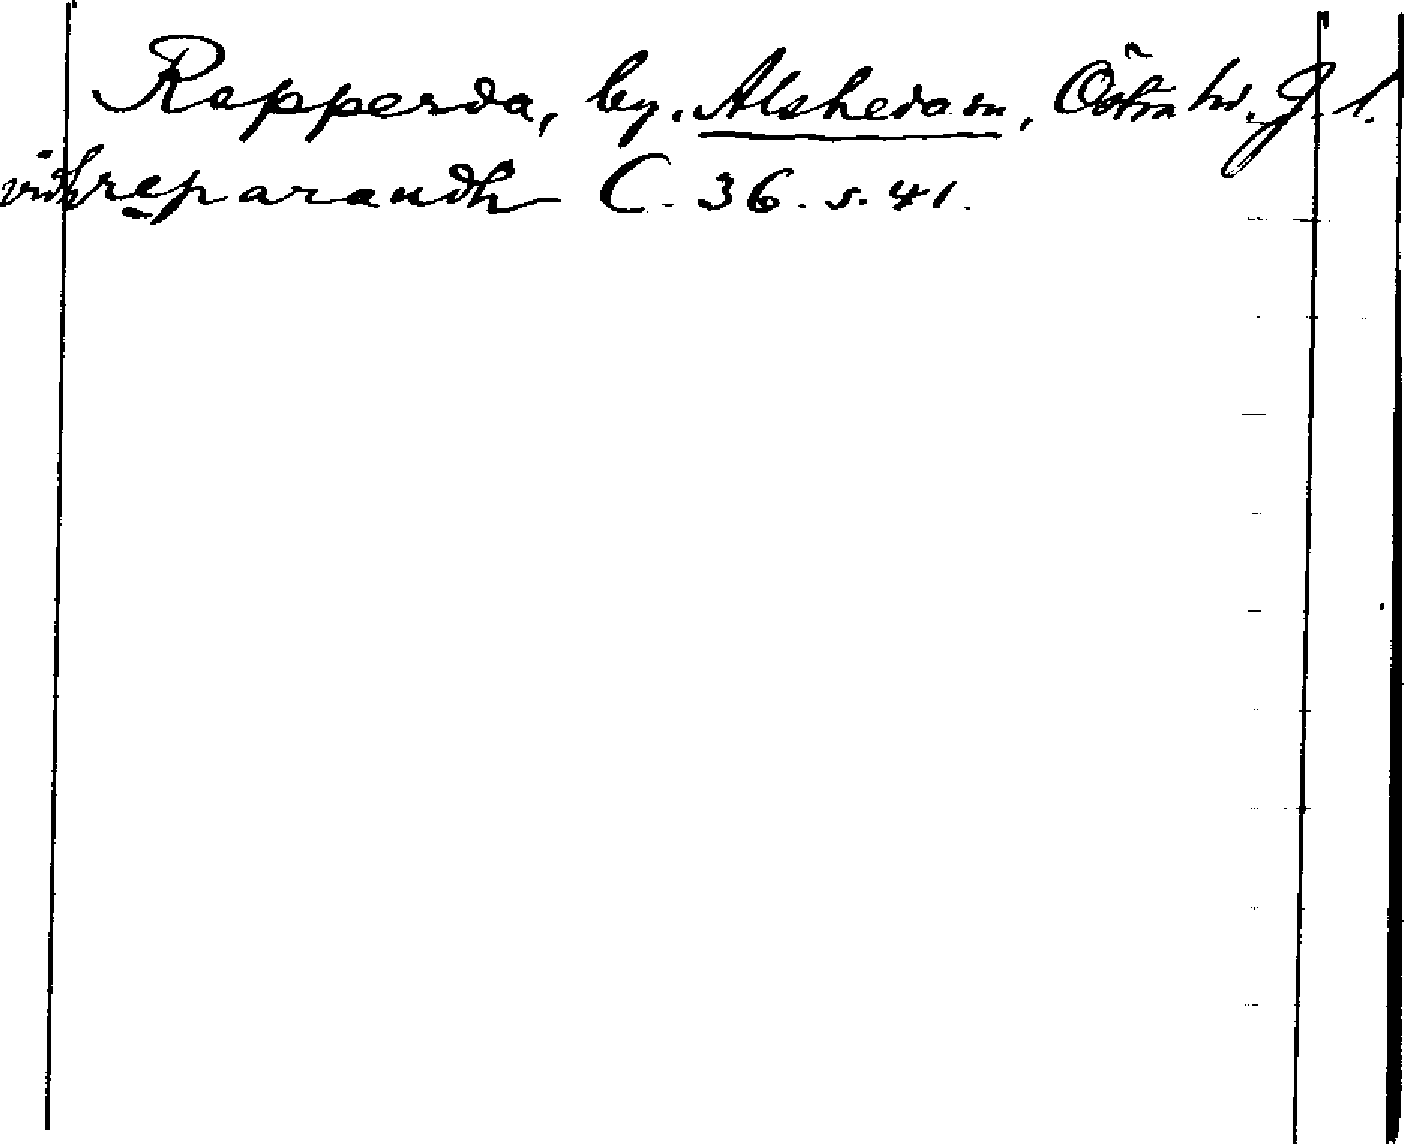 Repperda, by. Alsheda sn, Östra hd. J. l.
vidh reparaudh C. 36. s. 41.